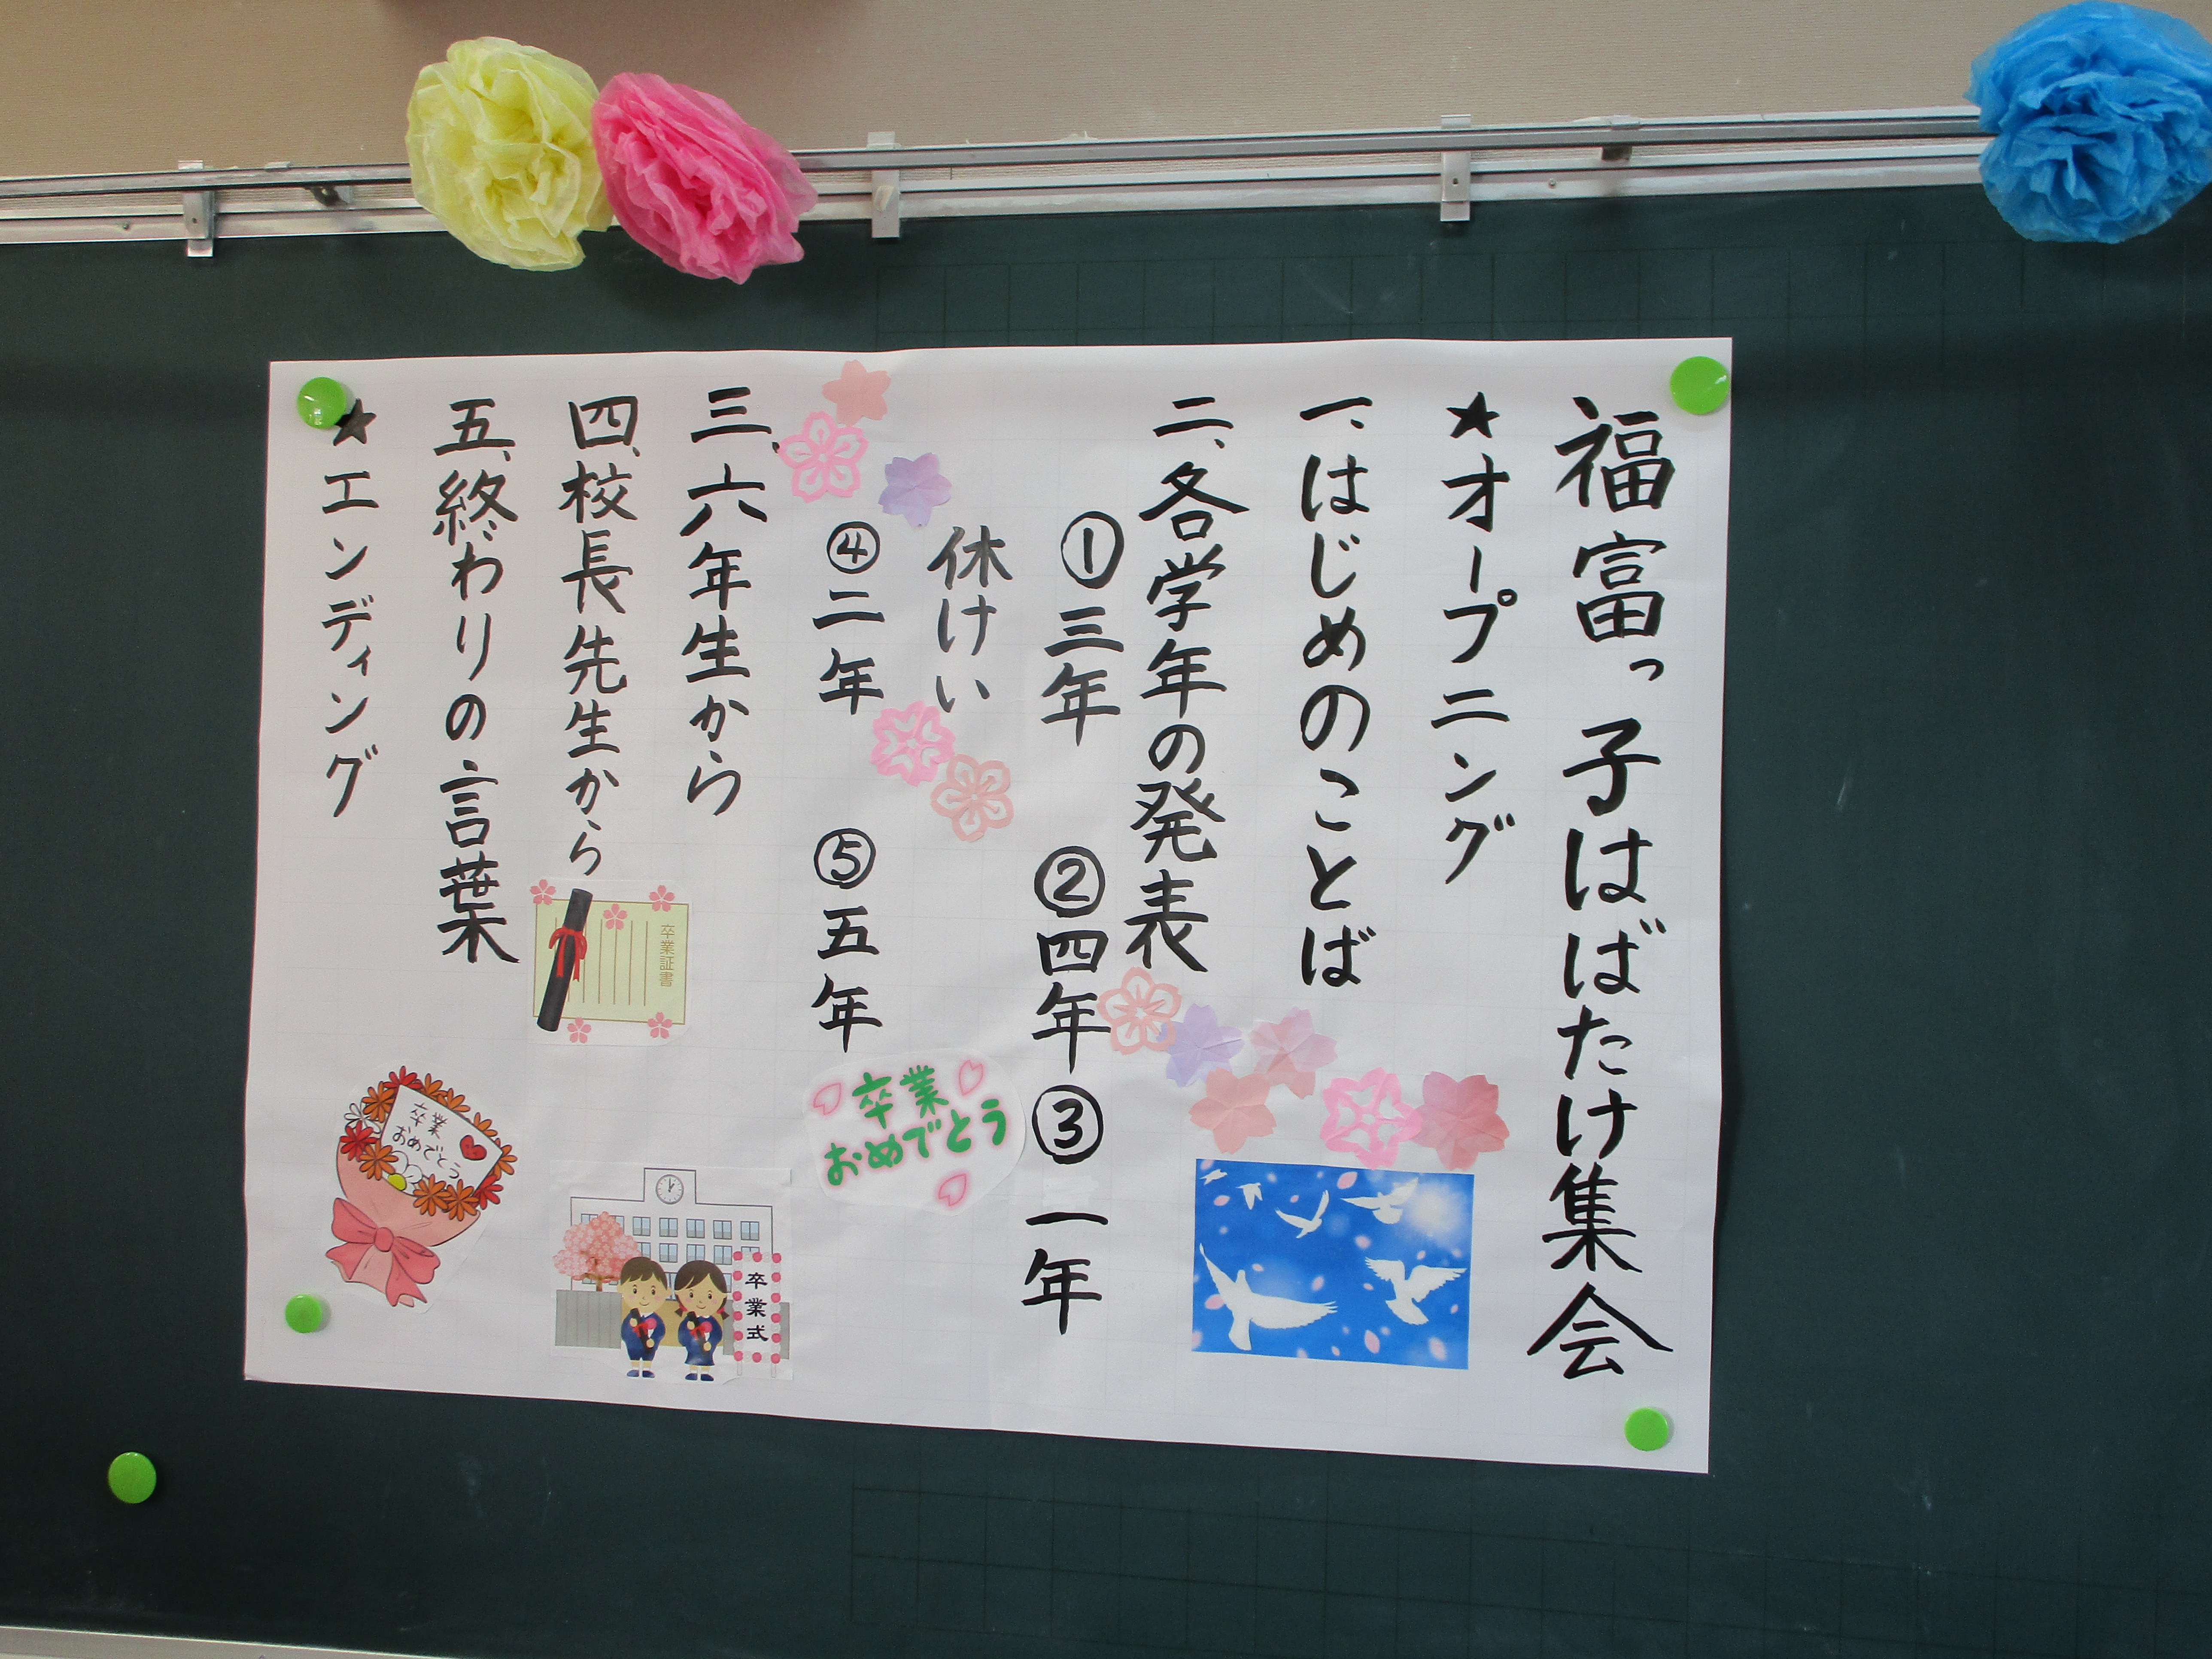 福富っ子はばたけ集会
★オープニング
一、はじめのことば
二、各学年の発表
①三年 ②四年 ③一年
休けい
④二年 ⑤五年
三、六年生から
四、校長先生から
五、終わりの言葉
★エンディング
卒業
おめでとう
卒業証書
卒業式
卒業
おめでとう